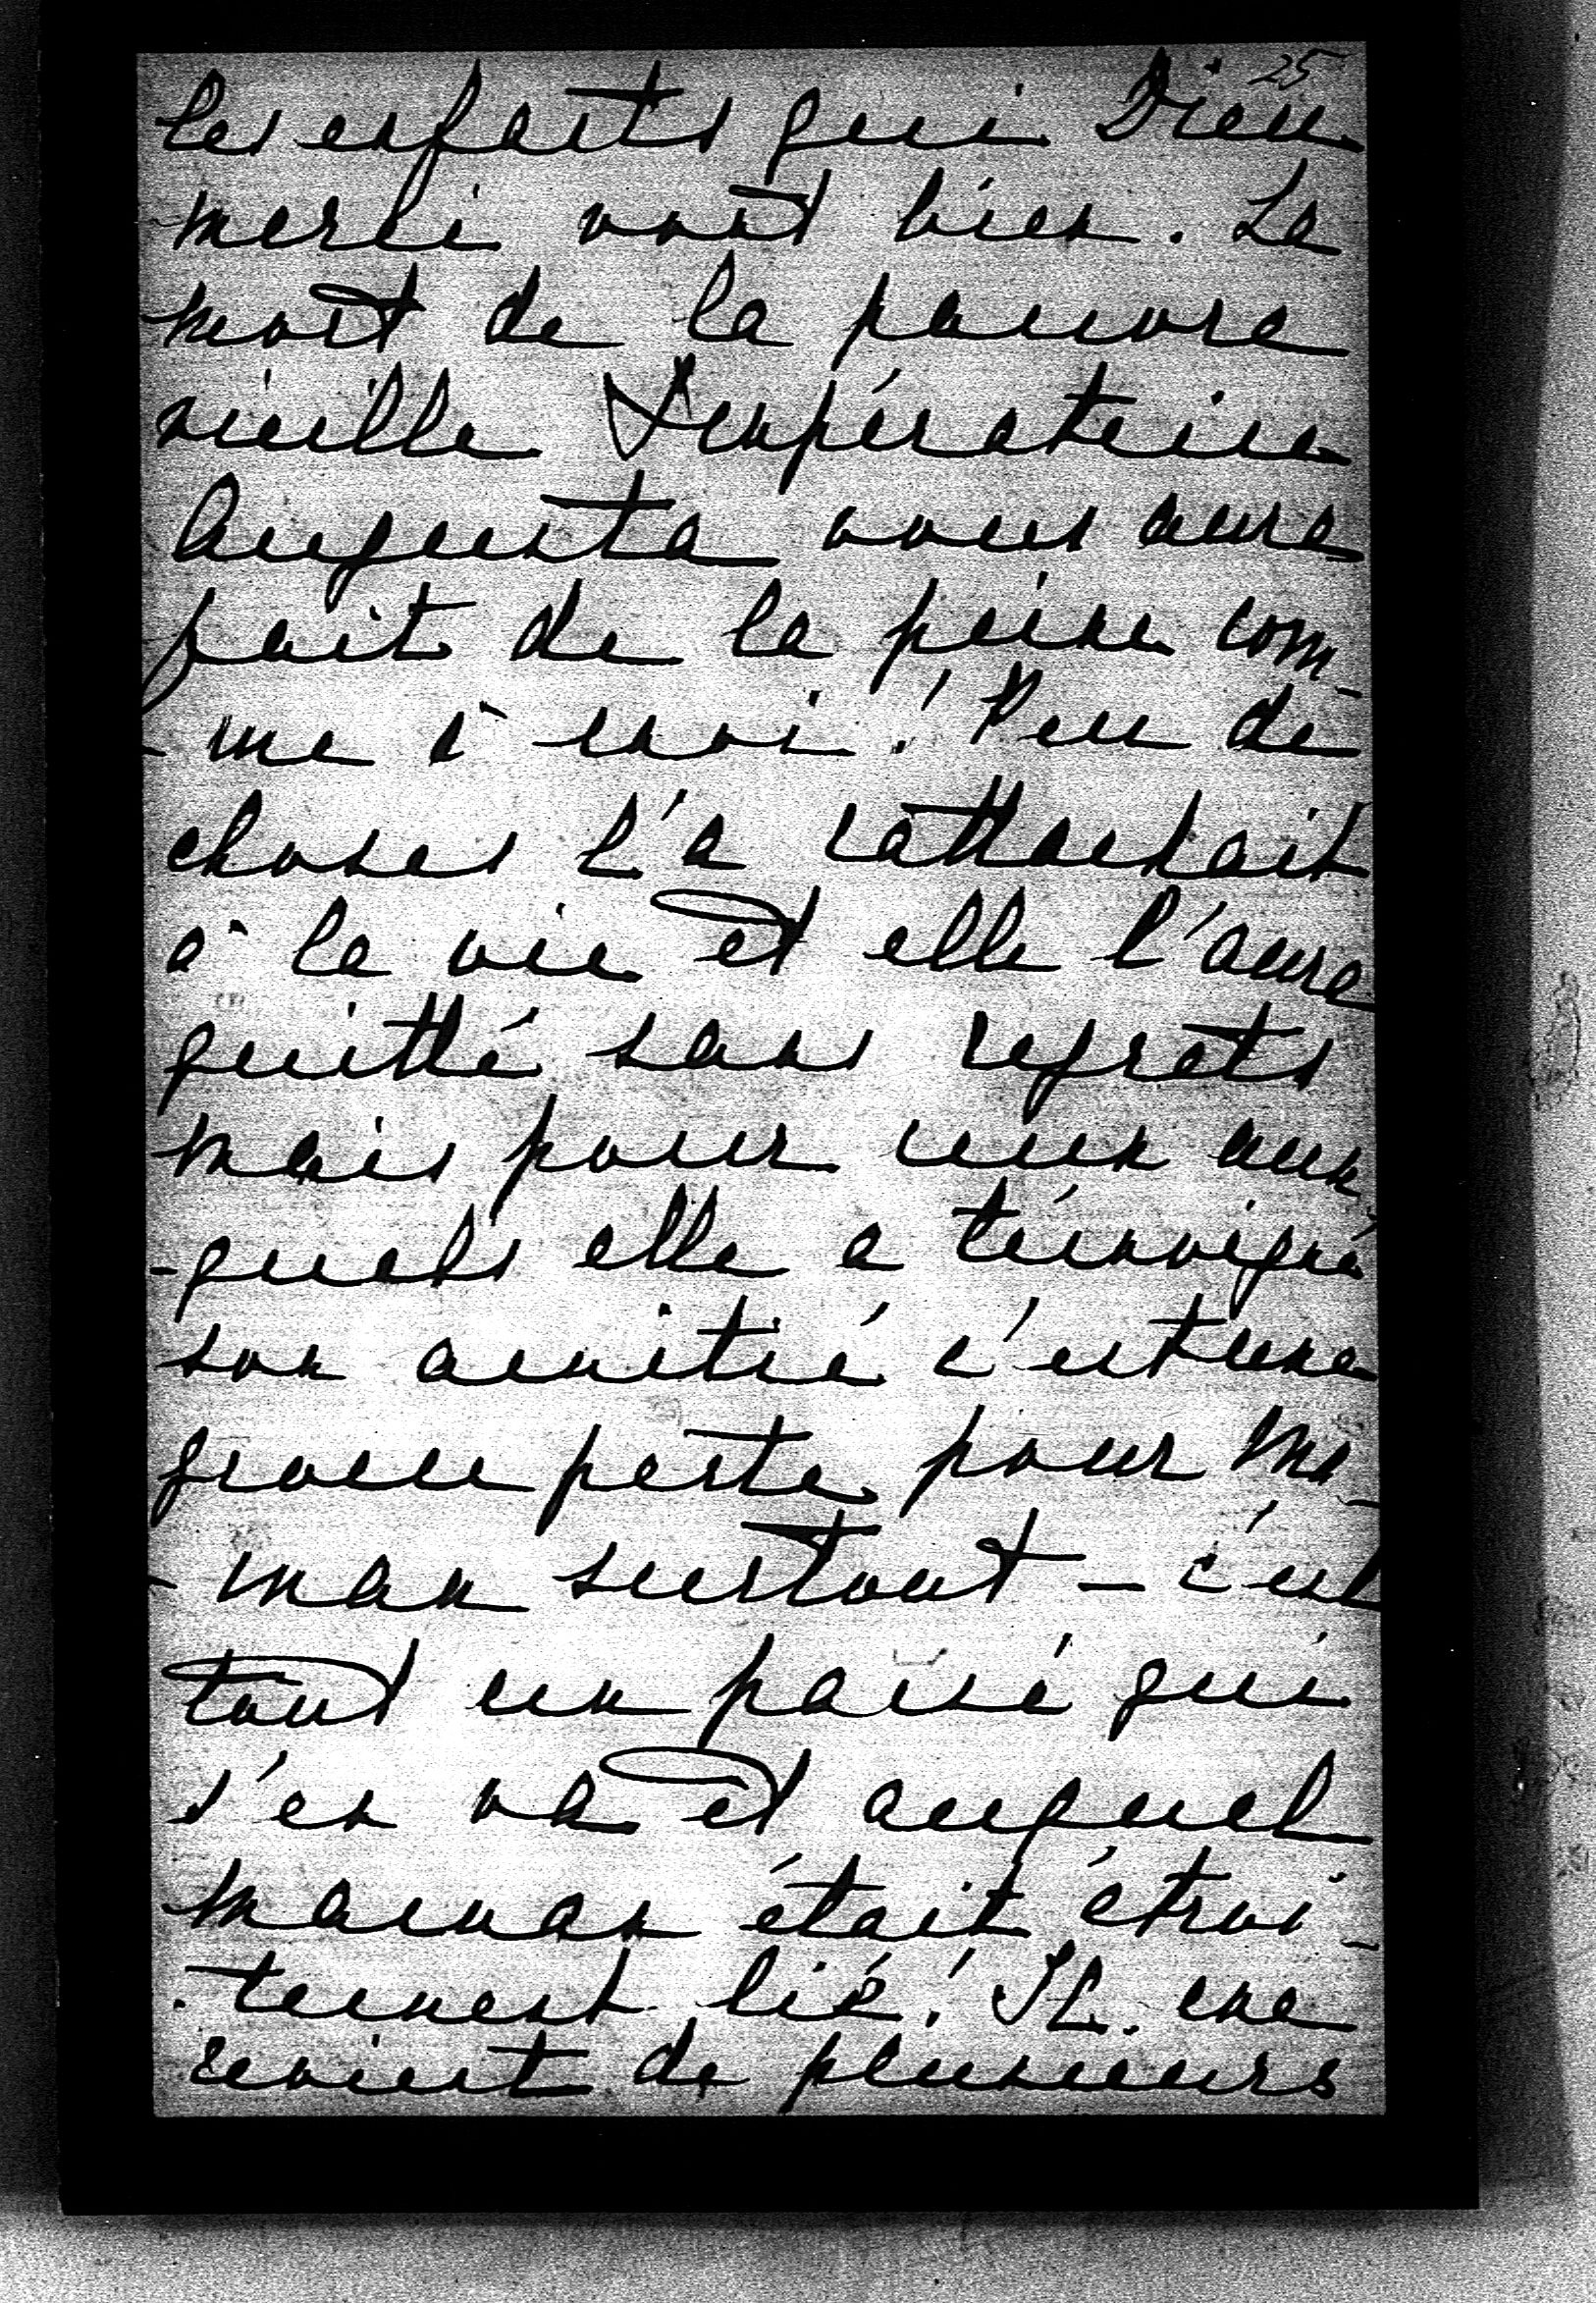 25
les enfants qui Dieu
merci vont bien. La
mort de la pauvre
vieille Impératrice
Augusta vous aura
fait de la peine com-
-me à moi! Peu de
choses l'a rattachait
à la vie et elle l'aura
quitté sans regrets
mais pour ceux aux
-quels elle a témoigné
son amitié c'est une
grosse perte pour Ma-
-man surtout – c'est
tout un passé qui
s'en va et auquel
Maman était étroi-
-tement lié! Il me
revient de plusieurs